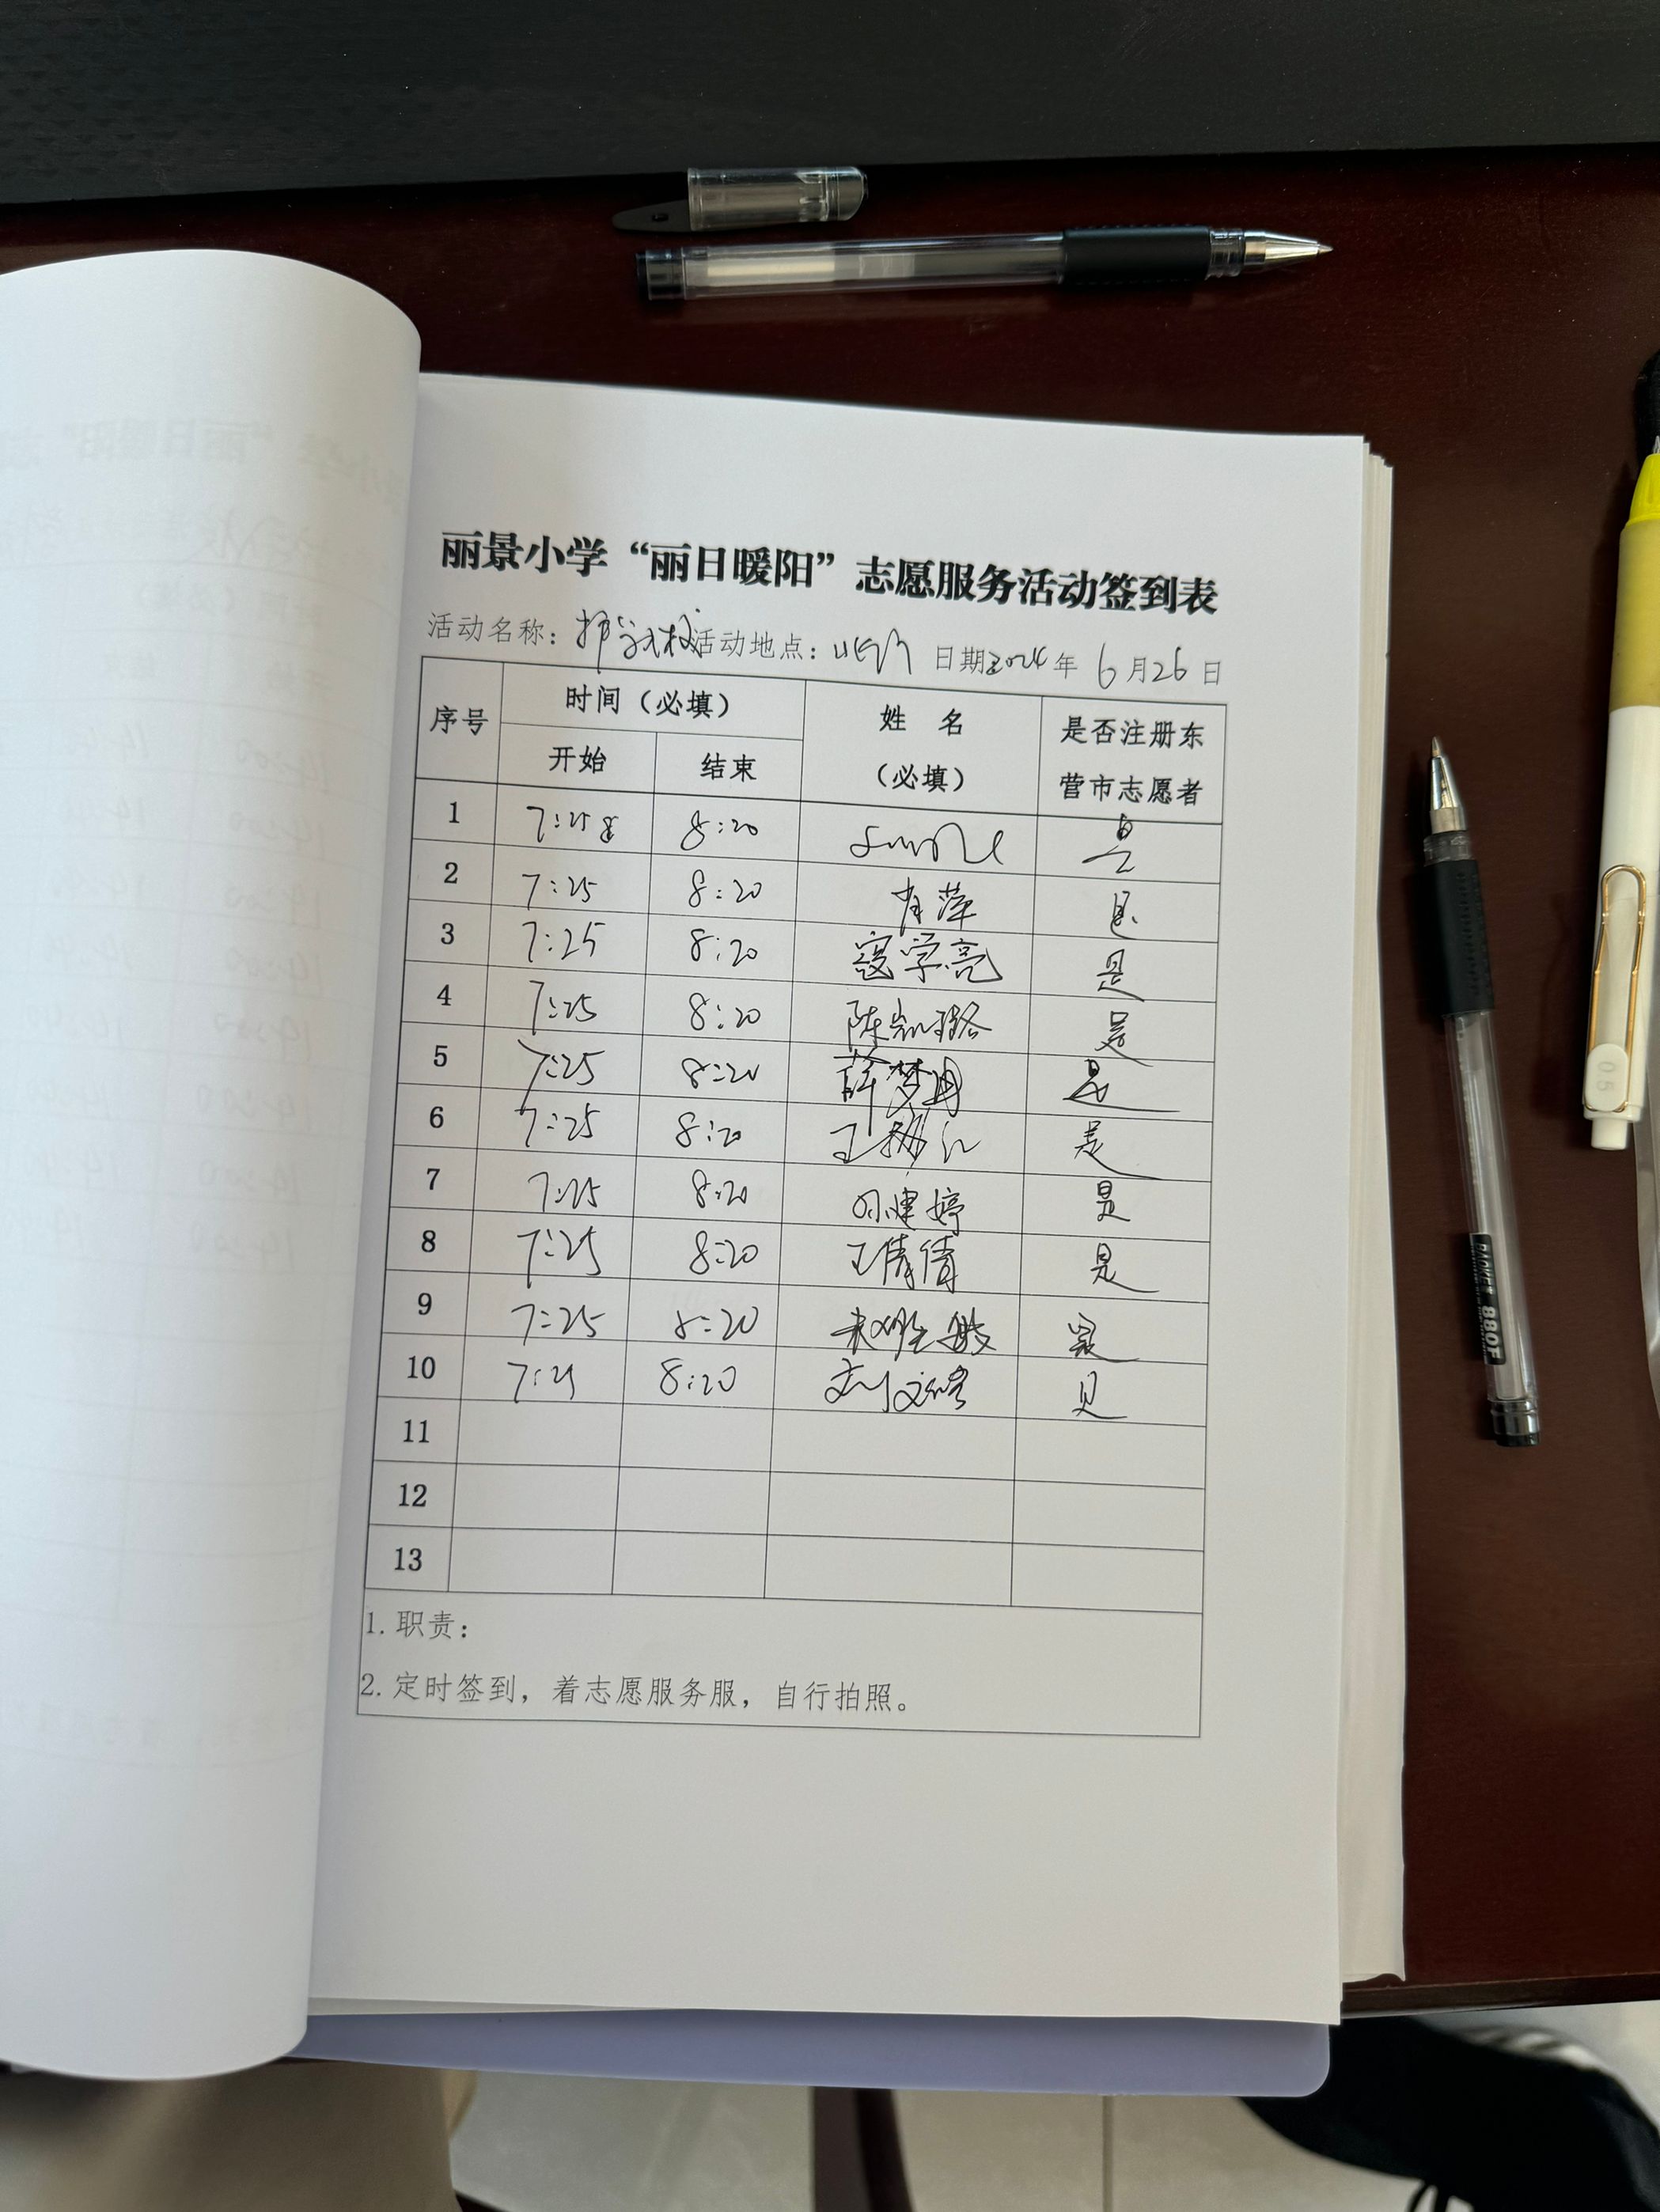 丽景小学“丽日暖阳”志愿服务活动签到表
活动名称：护学 活动地点： 日期2024年6月26日
序号 时间（必填） 姓 名（必填） 是否注册东营市志愿者
开始 结束
1 7:25 8:20 是
2 7:25 8:20 肖萍 是
3 7:25 8:20 寇学亮 是
4 7:25 8:20 陈凯璐 是
5 7:25 8:20 薛梦 是
6 7:25 8:20 王 是
7 7:25 8:20 建婷 是
8 7:25 8:20 王倩倩 是
9 7:25 8:20 是
10 7:25 8:20 刘 是
11
12
13
1. 职责：
2. 定时签到，着志愿服务服，自行拍照。
BAOKE 880F
0.5